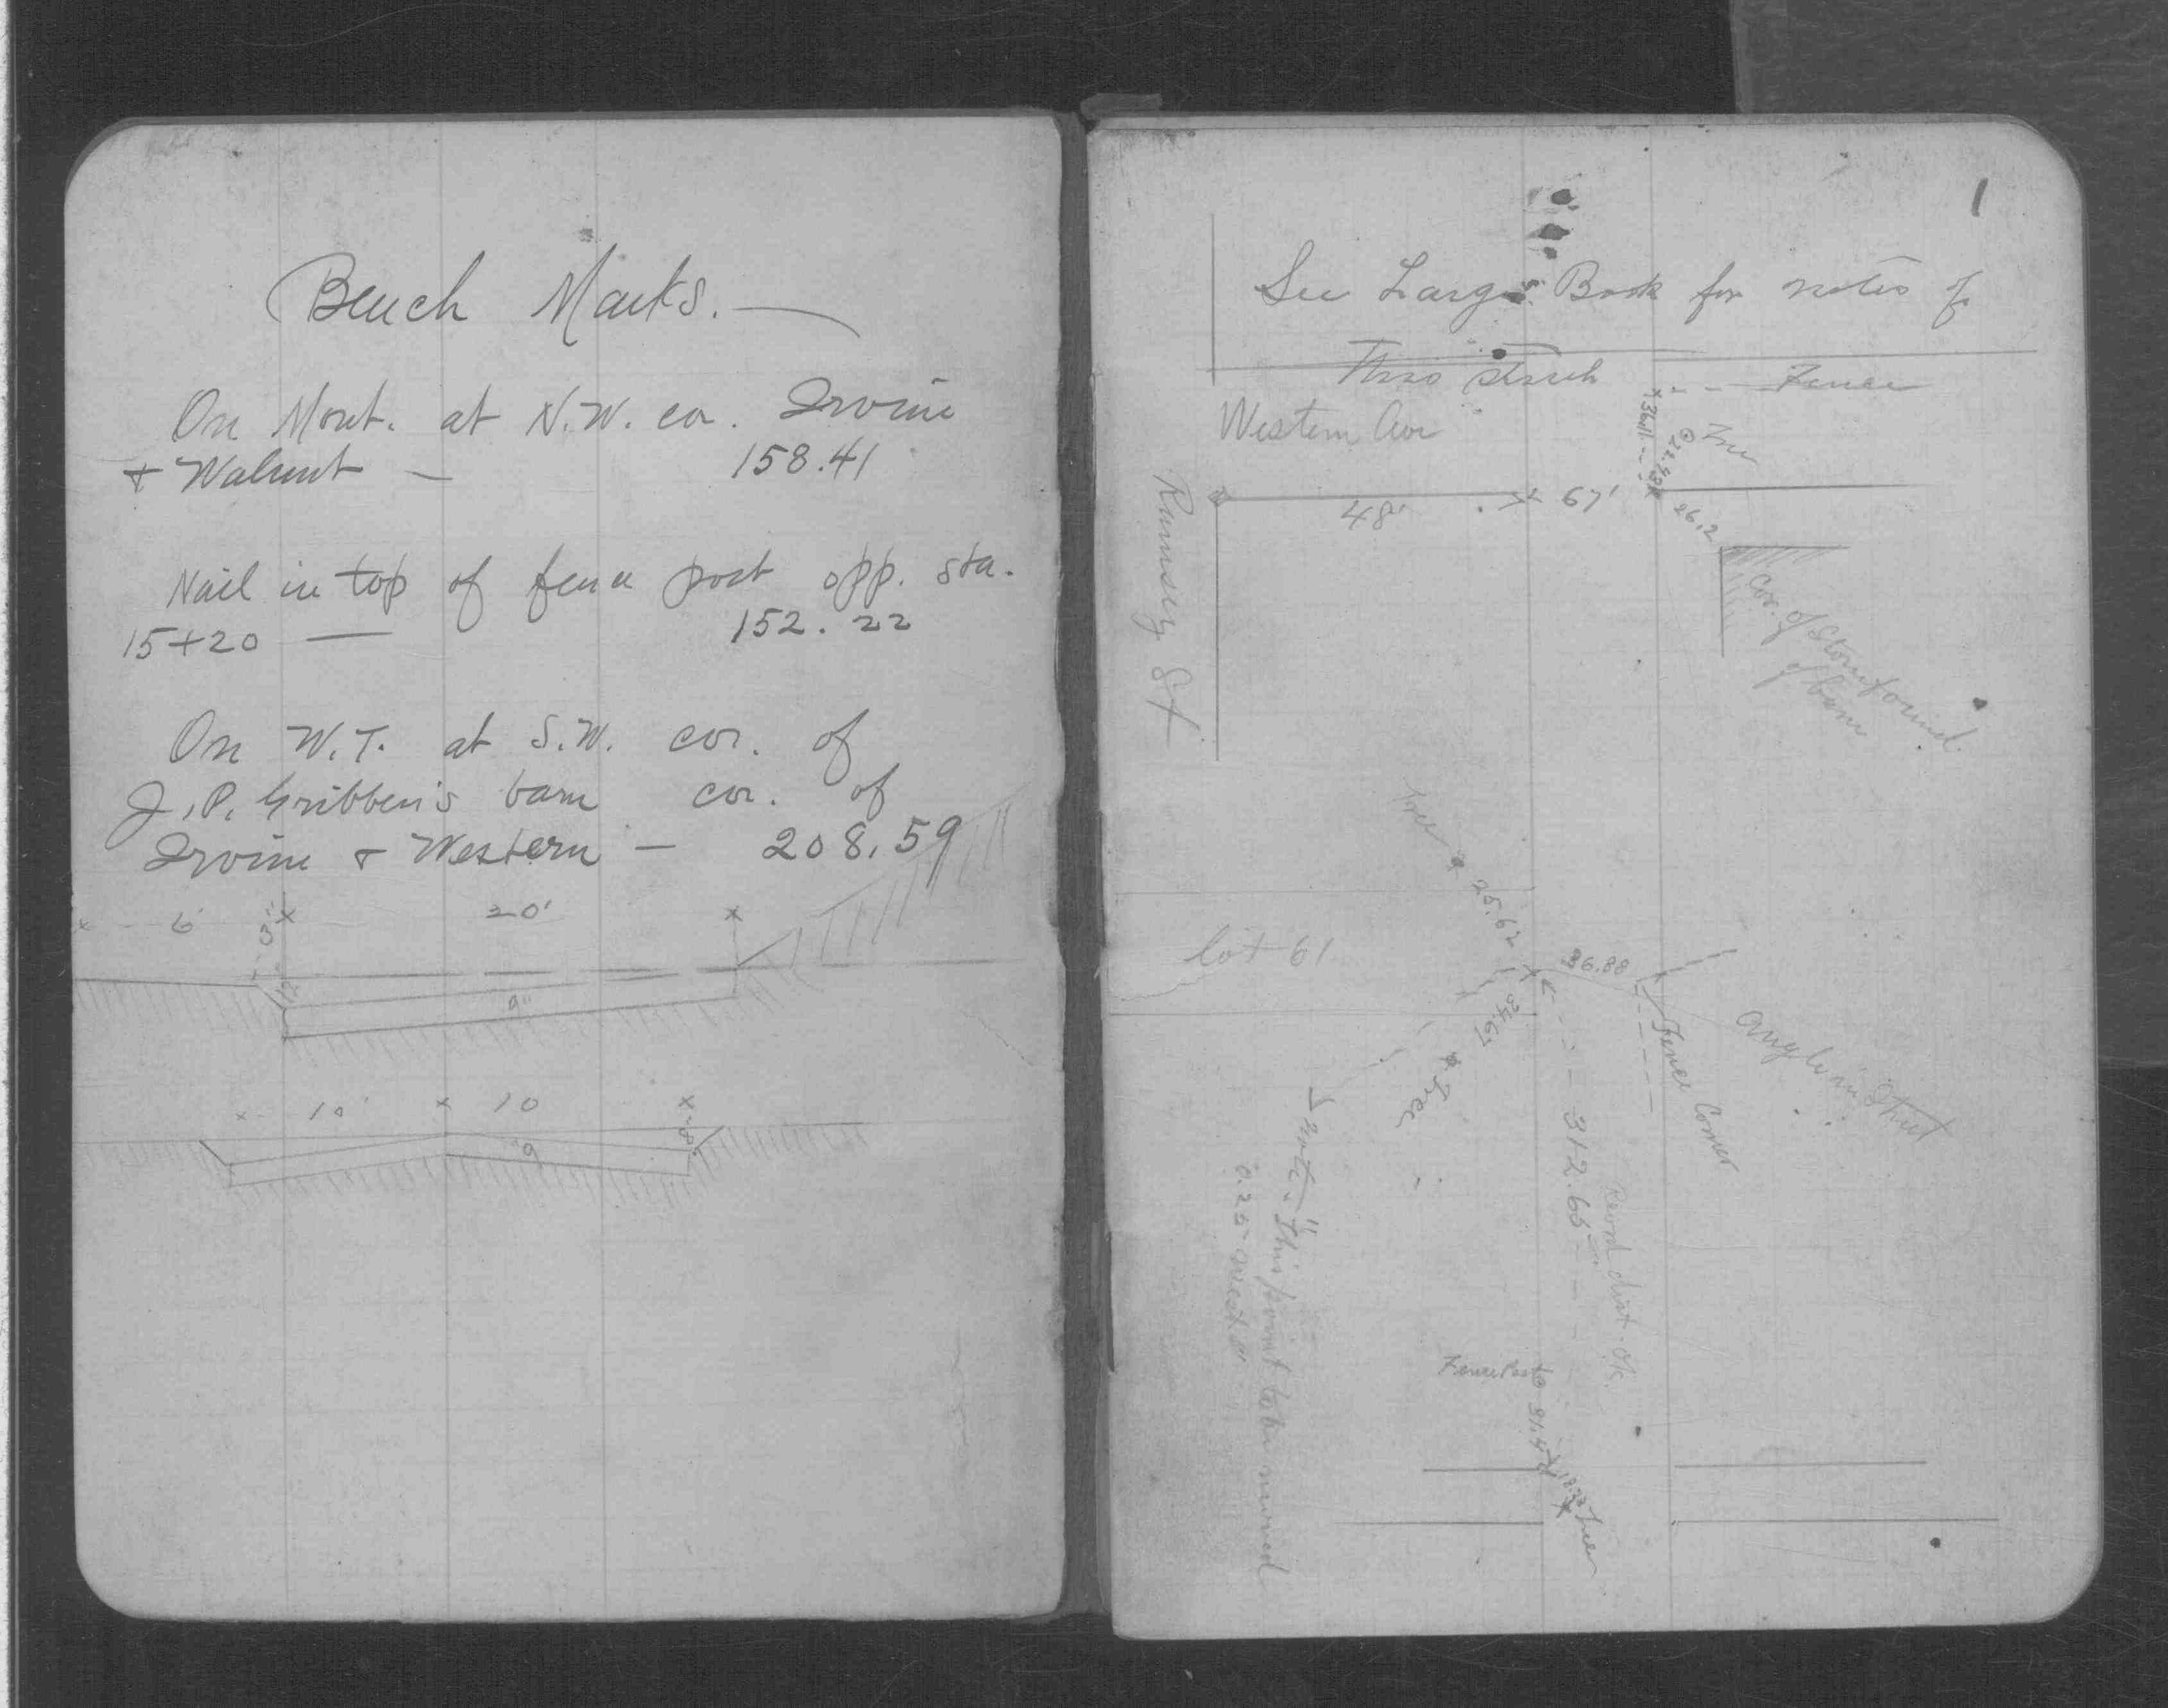 Bench Marks.
On Mont. at N.W. cor. Irvine
+ Walnut — 158.41
Nail in top of fence post opp. sta.
15+20 — 152.22
On W.T. at S.W. cor. of
J.P. Gribben's barn cor. of
Irvine + Western — 208.59
6' 20'
9"
10' 10
9"
1
See Large Book for notes of
This
Fence
Western Ave
Tree
48' 67'
26.2
Ramsey St.
Cor. of Stone found.
of barn
Tree
25.62
lot 61
36.88
34.67
Tree
Fence Corner
Angle in Street
312.65
Record dist. ok.
Note:- This point to be moved
0.25
Fence Post
Tree